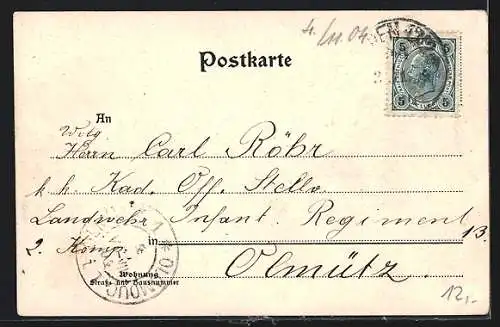 4./11.04
5 5
Postkarte
An
Wlg
Herrn Carl Röhr
k. k. Kad. Off. Stellv.
Landwehr Infant. Regiment 13.
2. Komp. in Olmütz
Wohnung
Straße und Hausnummer
OLOMOUC
12,-